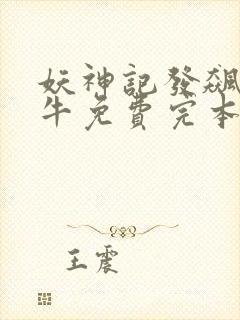 妖神記發飆
牛免費完本
王震